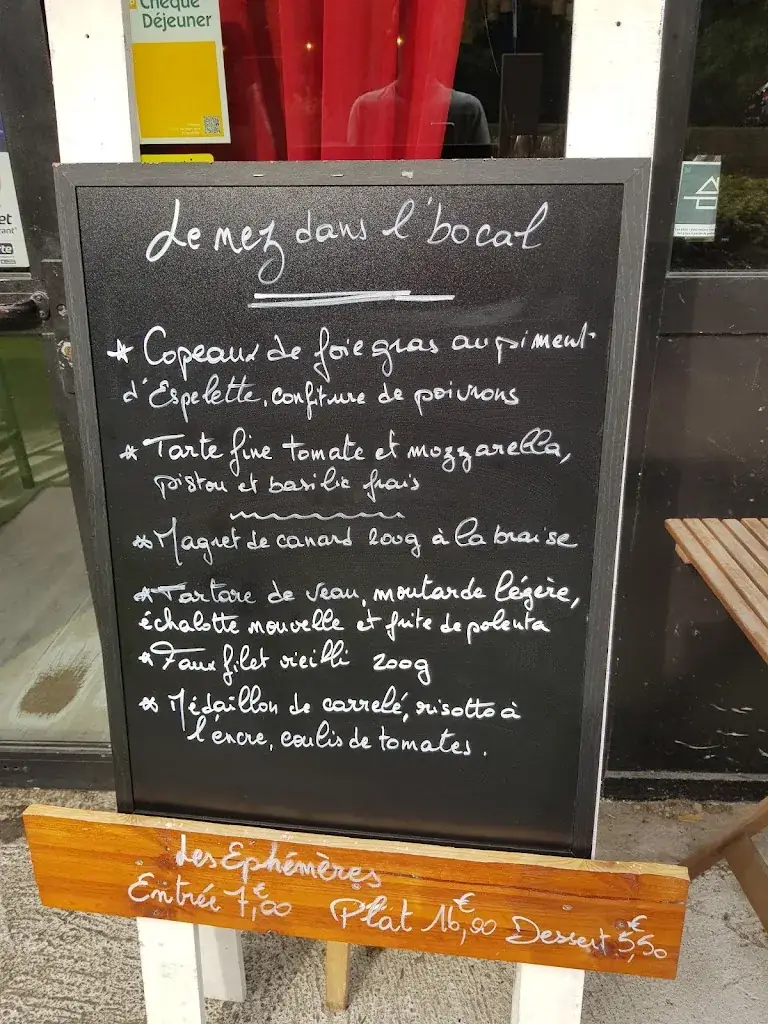 Chèque
Déjeuner
Le nez dans l'bocal
* Copeaux de foie gras au piment
d'Espelette, confiture de poivrons
* Tarte fine tomate et mozzarella,
pistou et basilic frais
* Magret de canard 200g à la braise
* Tartare de veau, moutarde légère,
échalotte nouvelle et frite de polenta
* Faux filet vieilli 200g
* Médaillon de carrelé, risotto à
l'encre, coulis de tomates.
Les Ephémères
Entrée 7,00€ Plat 16,00€ Dessert 5,50€